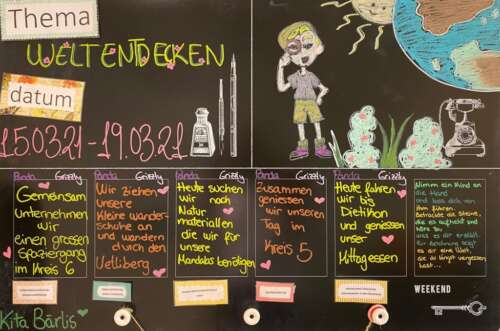 Thema
WELTENTDECKEN
datum
150321-19.0321
Panda Grizzly
Gemeinsam
unternehmen
wir
einen grossen
Spaziergang
im Kreis 6
Panda Grizzly
Wir ziehen
unsere
Kleine wander-
schuhe an
und wandern
durch den
Uetliberg
Panda Grizzly
Heute suchen
wir noch
Natur
materialien
die wir für
unsere
Mandalas benötigen
Panda Grizzly
Zusammen
geniessen
wir unseren
Tag im
Kreis 5
Panda Grizzly
Heute fahren
wir bis
Dietikon
und geniessen
unser
Mittagessen
Nimm ein Kind an
die Hand
und lass dich von
ihm führen.
Betrachte die Steine,
die es aufhebt und
höre zu,
was es dir erzählt.
Zur Belohnung zeigt
es dir eine Welt,
die du längst vergessen
hast...
WEEKEND
Kita Bärlis